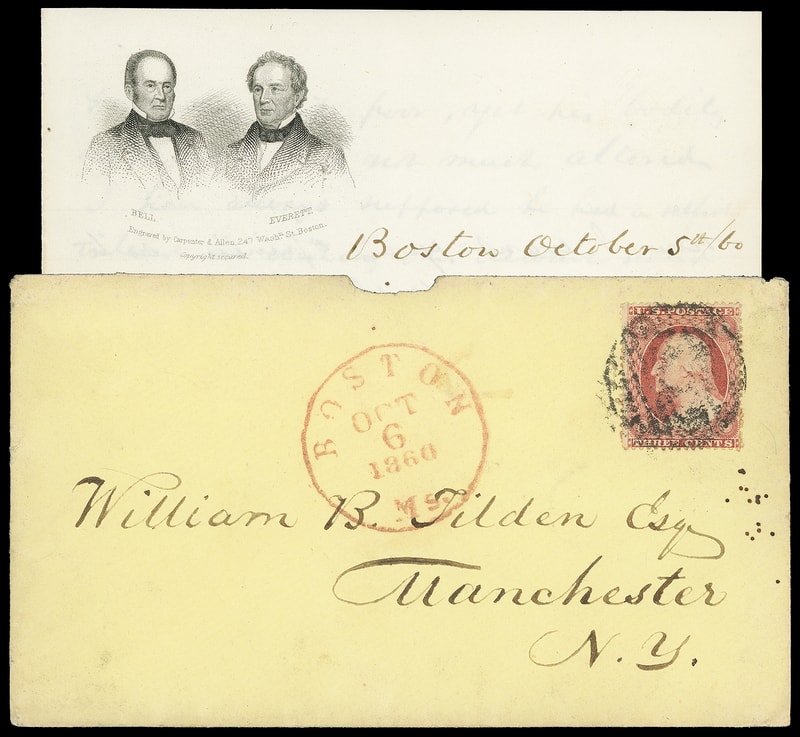 BELL,
EVERETT.
Engraved by Carpenter & Allen, 247 Wash.ⁿ St. Boston.
Copyright secured.
Boston October 5th/60
U.S. POSTAGE
THREE CENTS
BOSTON
OCT
6
1860
MS.
William B. Tilden Esq
Manchester
N. Y.